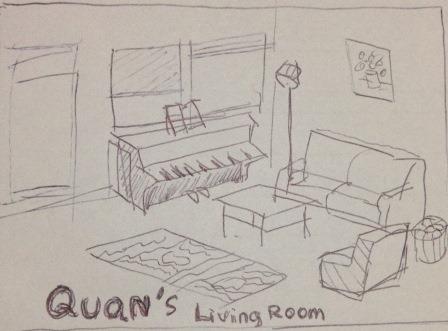 Quan's Living Room